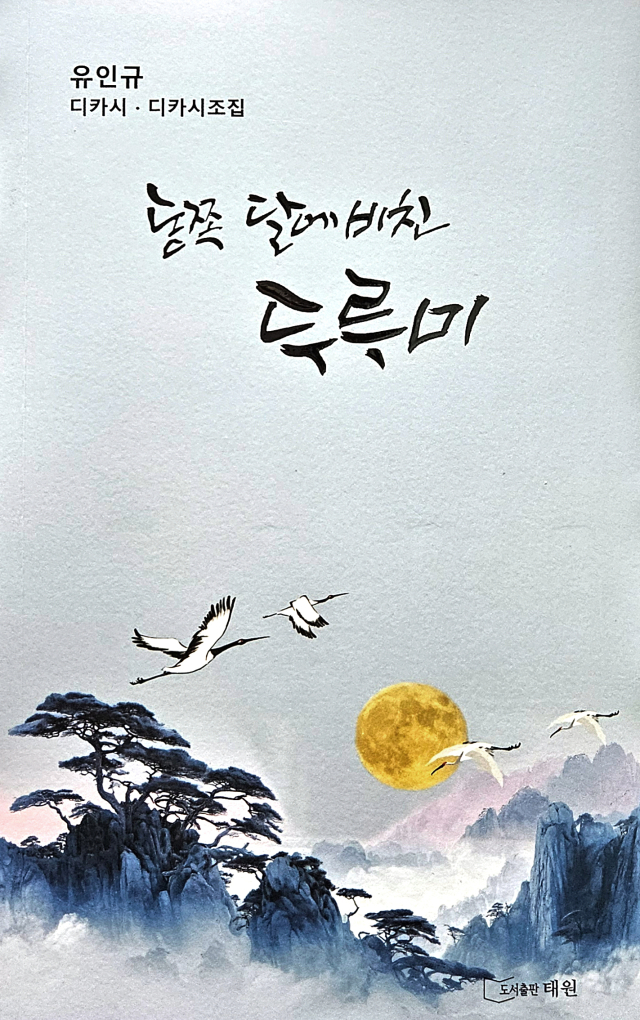 유인규
디카시 · 디카시조집
남쪽 달에 비친
두루미
도서출판 태원